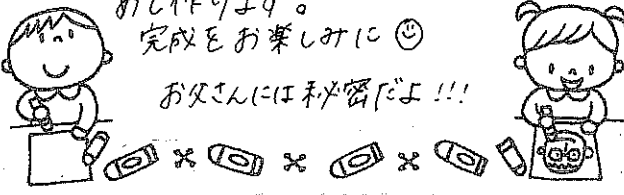 作ります。
完成をお楽しみに
お父さんには秘密だよ!!!